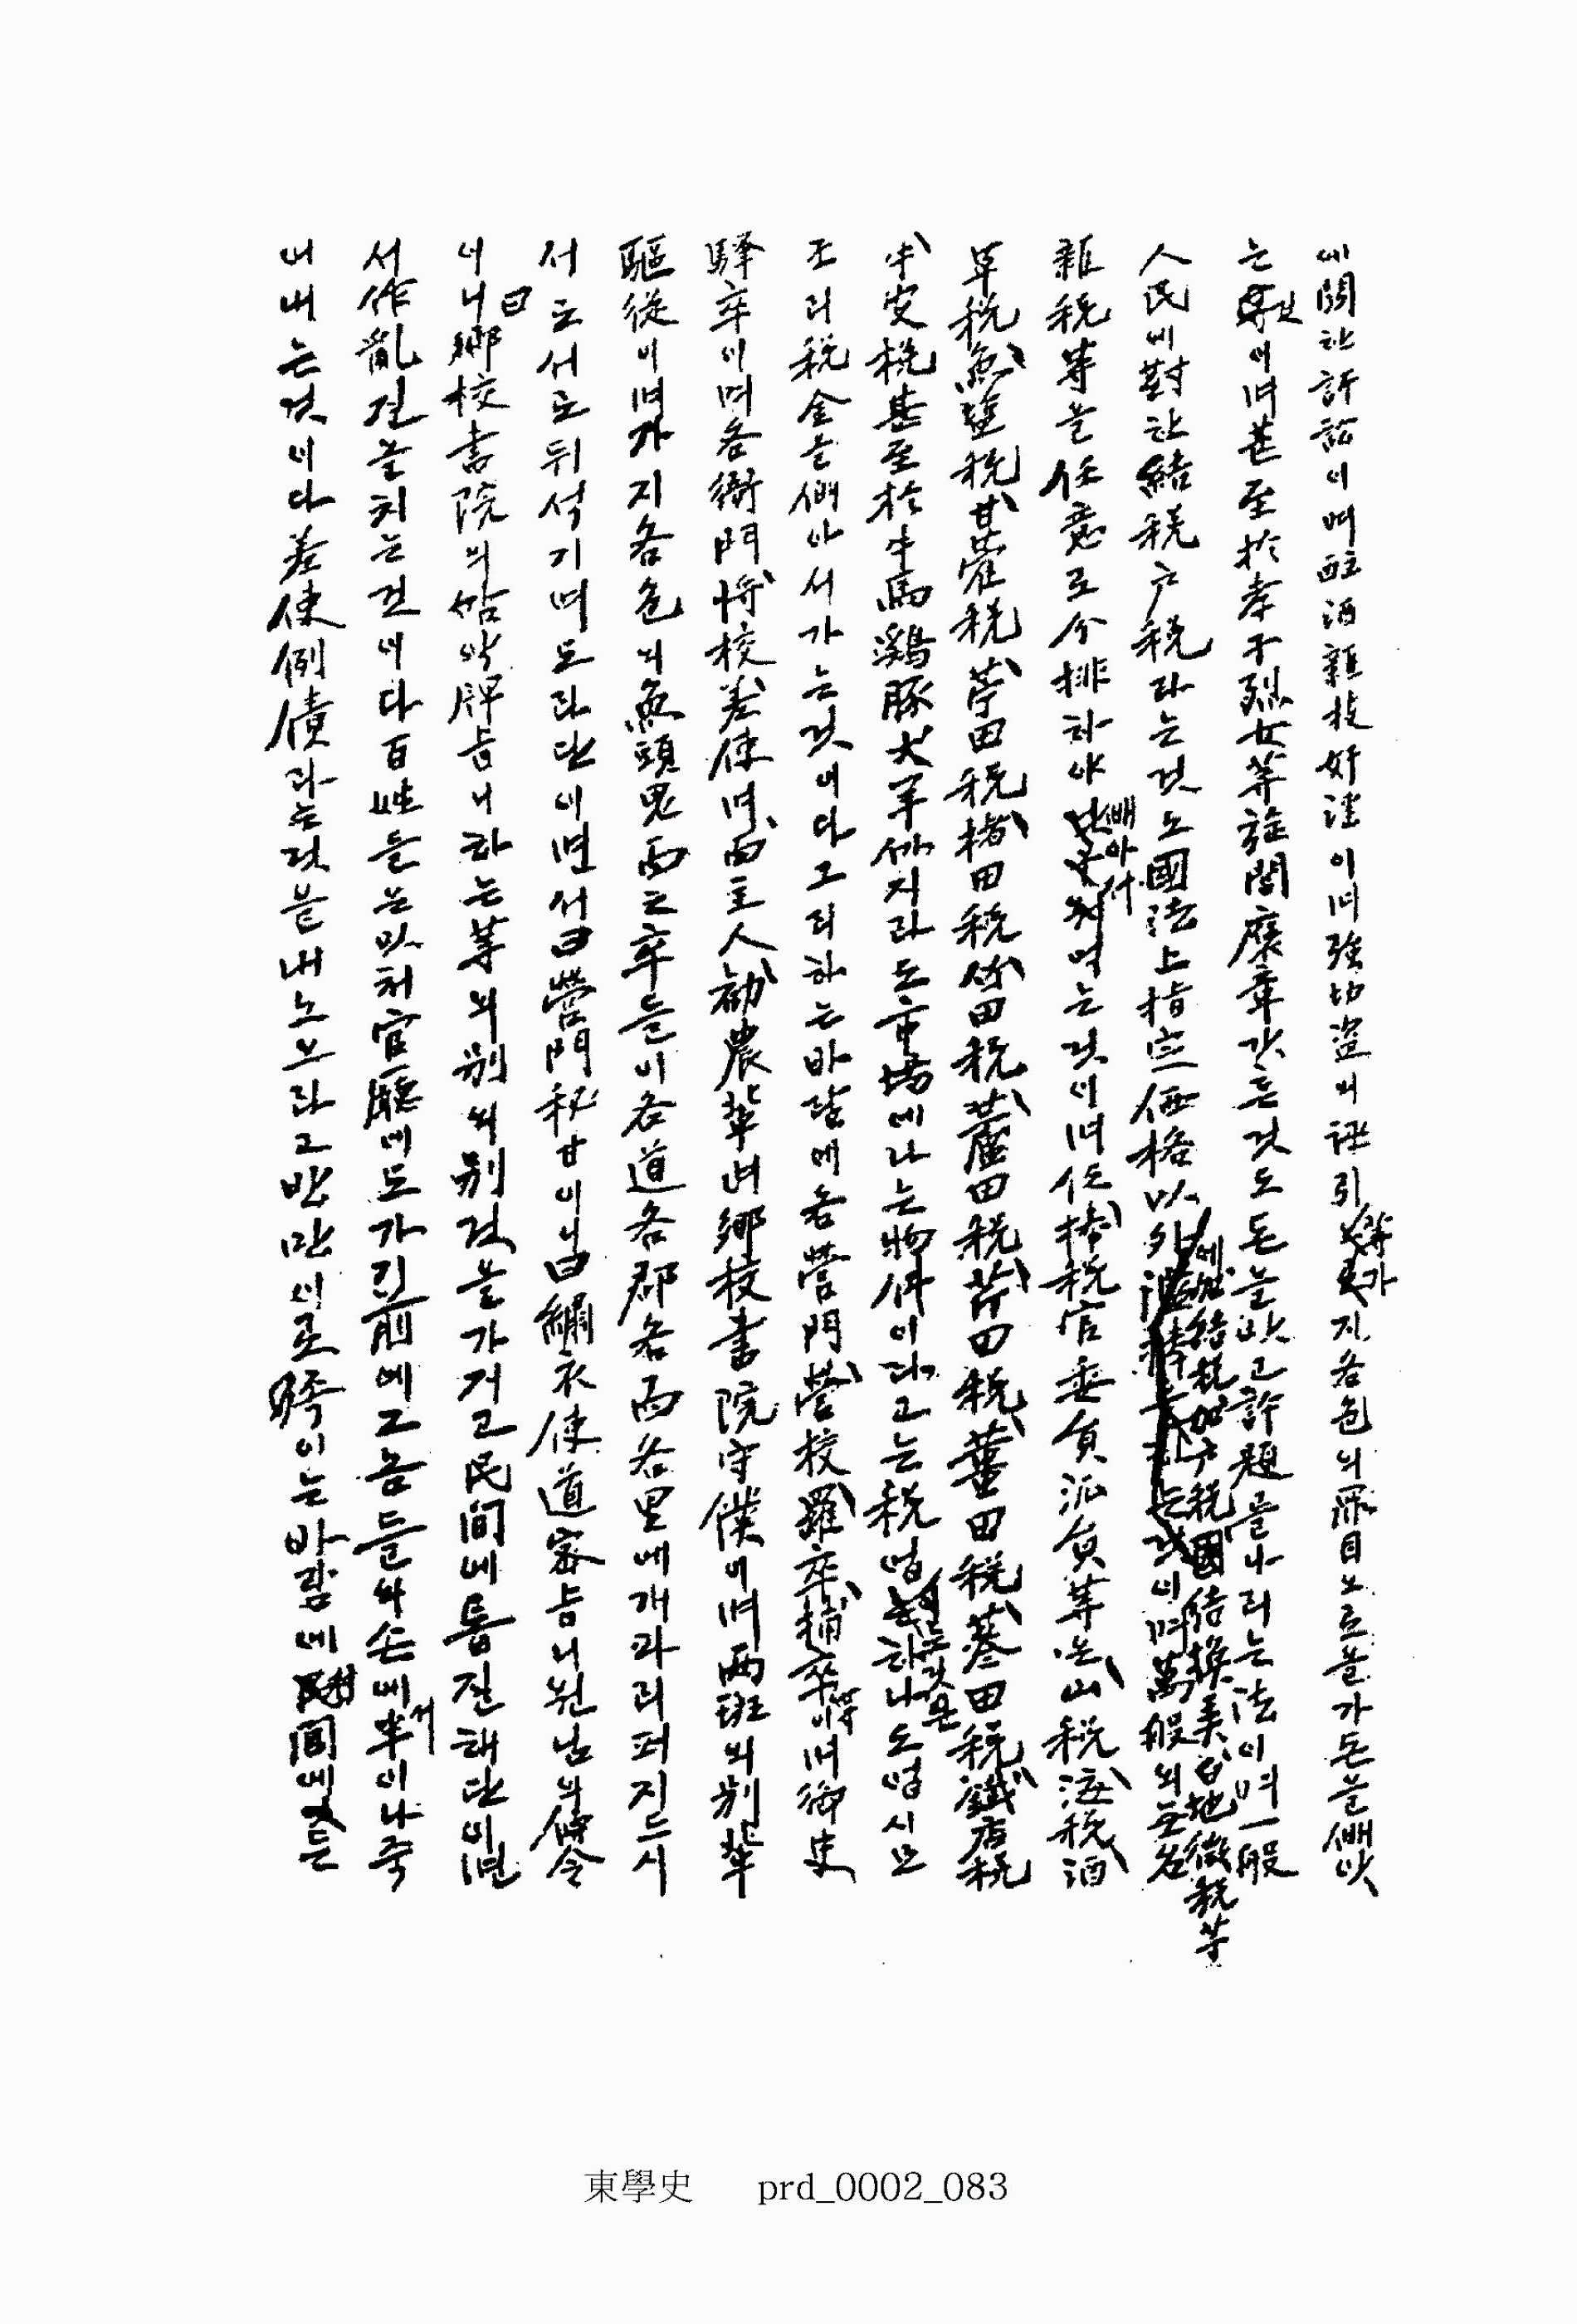 에關한訴訟이며酗酒雜技奸淫이며强切盜의誣引等가지가지各色의罪目으로돈을가돈을빼앗
는것이며甚至於孝子烈女等旌閭褒章갓흔것도돈을밧고許題를나리는法이며一般
人民에對한結稅戶稅라는것도國法上指定価格以外에加結稅加戶稅國結換弄白地徵稅等이며萬般의無名
雜稅等을任意로分排하야빼아서먹는것이며任捧稅官垂負派負等은山稅海稅酒
草稅魚鹽稅甘藿稅苧田稅楮田稅竹田稅蘆田稅芹田稅薑田稅蔘田稅鐵店稅
牛皮稅甚至於牛馬鷄豚犬羊까지라도市場에나는物件이라고는稅업는것은하나도업시모
조리稅金을빼아서가는것이다그리하는바람에各營門營校羅卒捕卒等이며御史
驛卒이며各衙門將校差使며面主人勸農輩며鄕校書院守僕이며兩班의別輩
驅從이며가지各色의魚頭鬼面之卒들이各道各郡各面各里에개과리퍼지드시
서고서고뒤석기며도라단이면서曰營門秘甘이니曰繡衣使道密旨니원님의傳令
이니曰鄕校書院의 牌旨니하는等의別의別것을가지고民間에톰질해단이면
서作亂질을치는것이다百姓들은밋처官廳에도가기前에그놈들의손에서半이나죽
어내는것이다差使例債라는것을내노으라고반만이로 이는바람에村間에든
東學史 prd_0002_083